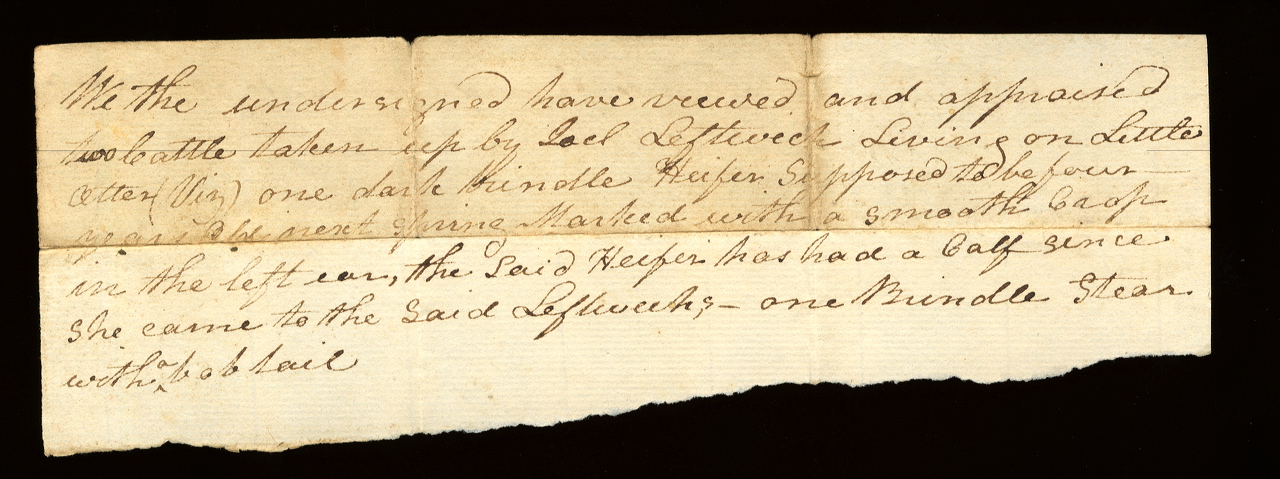 We the undersigned have viewed and appraised
two Cattle taken up by Joel Leftwich Living on Little
Otter (Viz) one dark brindle Heifer Supposed to be four
years old next Spring Marked with a smooth Crop
in the left ear, the Said Heifer has had a Calf since
She came to the Said Leftwichs, – one Brindle Stear
with a bob tail